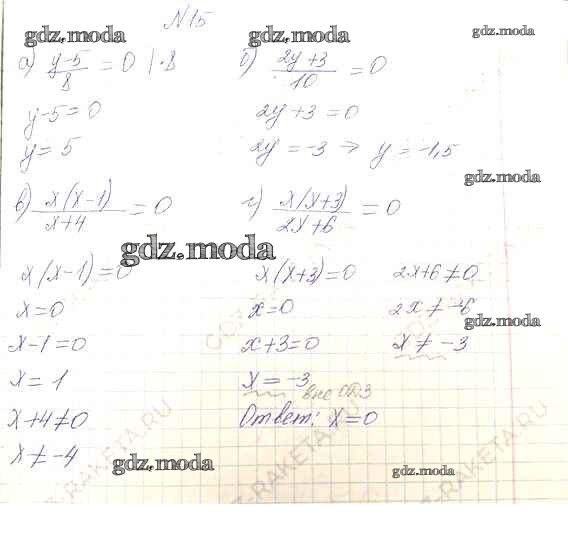 №15
gdz.moda gdz.moda gdz.moda
а) (y-5)/8 = 0 |·8
y-5=0
y= 5
б) (2y+3)/10 = 0
2y+3=0
2y=-3 ⇒ y=-1,5
gdz.moda
в) x(x-1)/(x+4) = 0
gdz.moda
x(x-1)=0
x=0
x-1=0
x=1
x+4≠0
x≠-4
gdz.moda
г) x(x+3)/(2x+6) = 0
x(x+3)=0
x=0
x+3=0
x=-3 вне ОДЗ
Ответ: x=0
2x+6≠0
2x≠-6
gdz.moda
x≠-3
gdz.moda